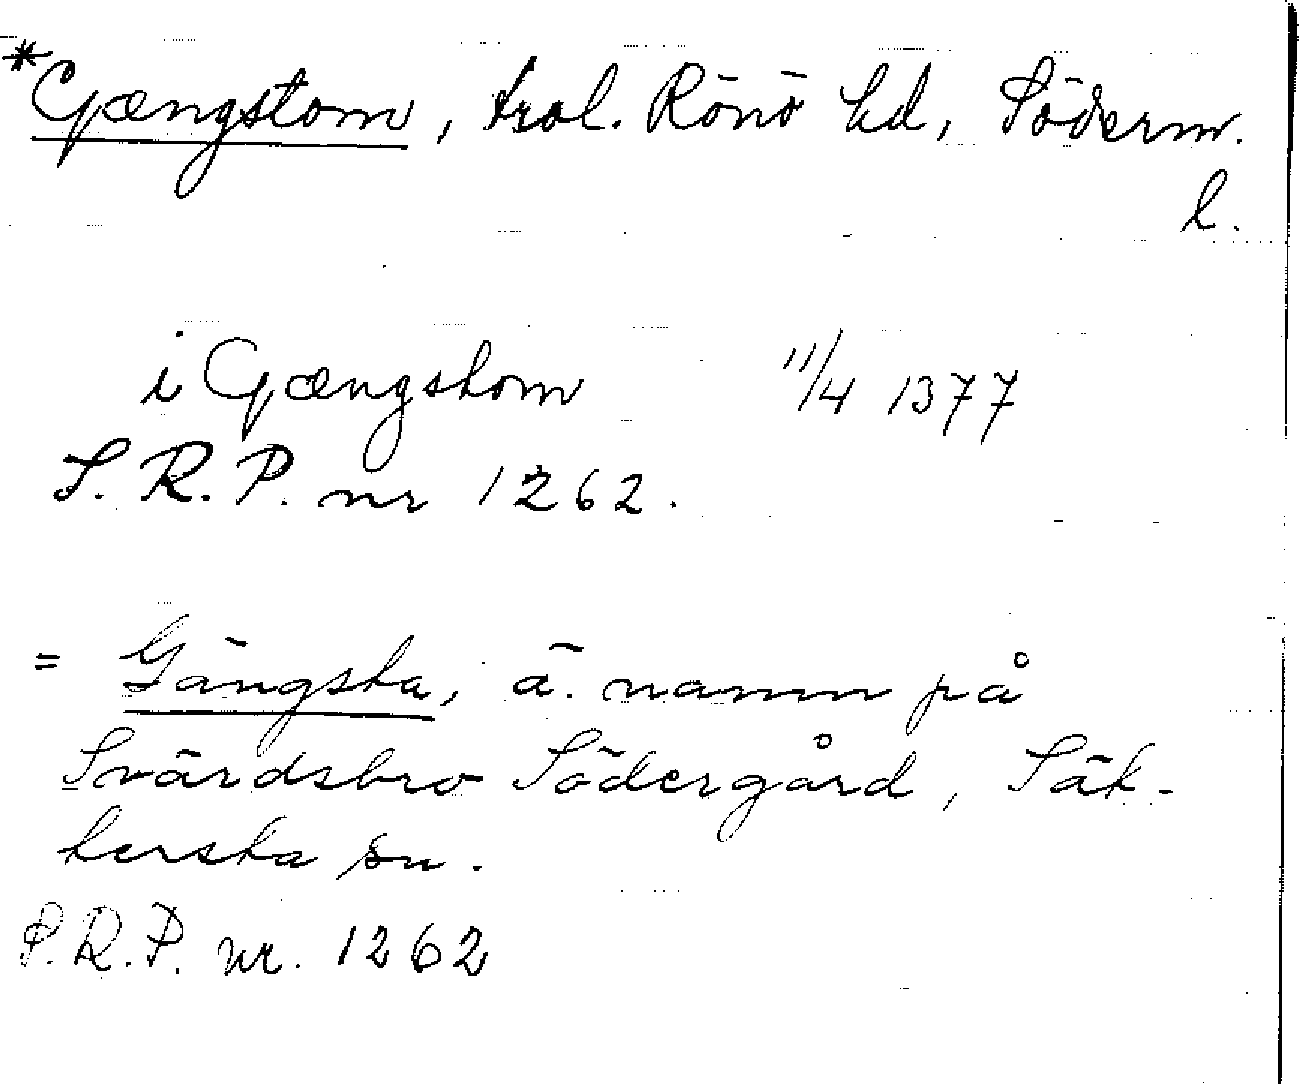 *Gængstom, trol. Rönö hd, Söderm.
l.
i Gængstom 11/4 1377
S. R. P. nr 1262.
= Gängsta, ä. namn på
Svärdsbro Södergård, Sät-
tersta sn.
S.R.P. nr. 1262